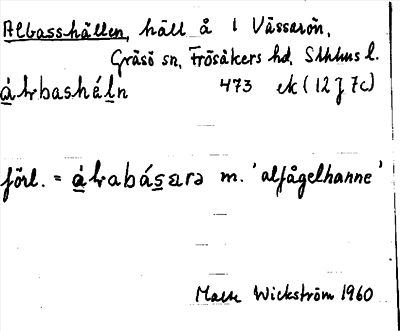 Albasshällen, häll å l Vässarön,
Gräsö sn, Frösåkers hd, Sthlms l.
álrbashéln 473 ek (12 J 7c)
förl. = álrabásarə m. 'alfågelhanne'
Wickström 1960